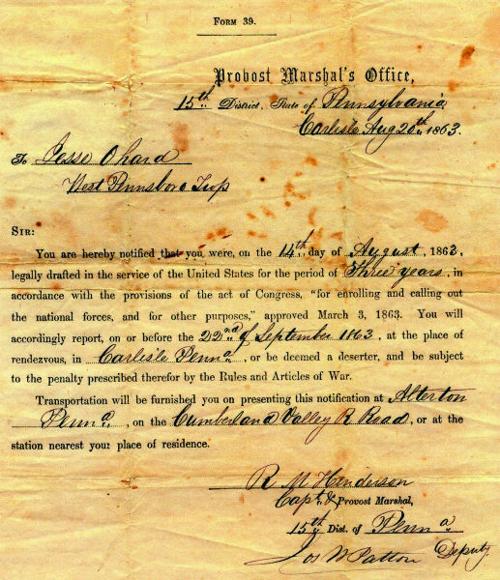 Form 39.
Provost Marshal's Office,
15th District, State of Pennsylvania
Carlisle Aug 20th 1863.
To Jesse Ohard
West Pennsboro Twp
Sir:
You are hereby notified that you were, on the 14th day of August, 1863,
legally drafted in the service of the United States for the period of Three years, in
accordance with the provisions of the act of Congress, "for enrolling and calling out
the national forces, and for other purposes," approved March 3, 1863. You will
accordingly report, on or before the 22nd of September 1863, at the place of
rendezvous, in Carlisle Penna, or be deemed a deserter, and be subject
to the penalty prescribed therefor by the Rules and Articles of War.
Transportation will be furnished you on presenting this notification at Alterton
Penna, on the Cumberland Valley R Road, or at the
station nearest your place of residence.
R M Henderson
Capt & Provost Marshal,
15th Dist. of Penna
Jos W Patton Deputy